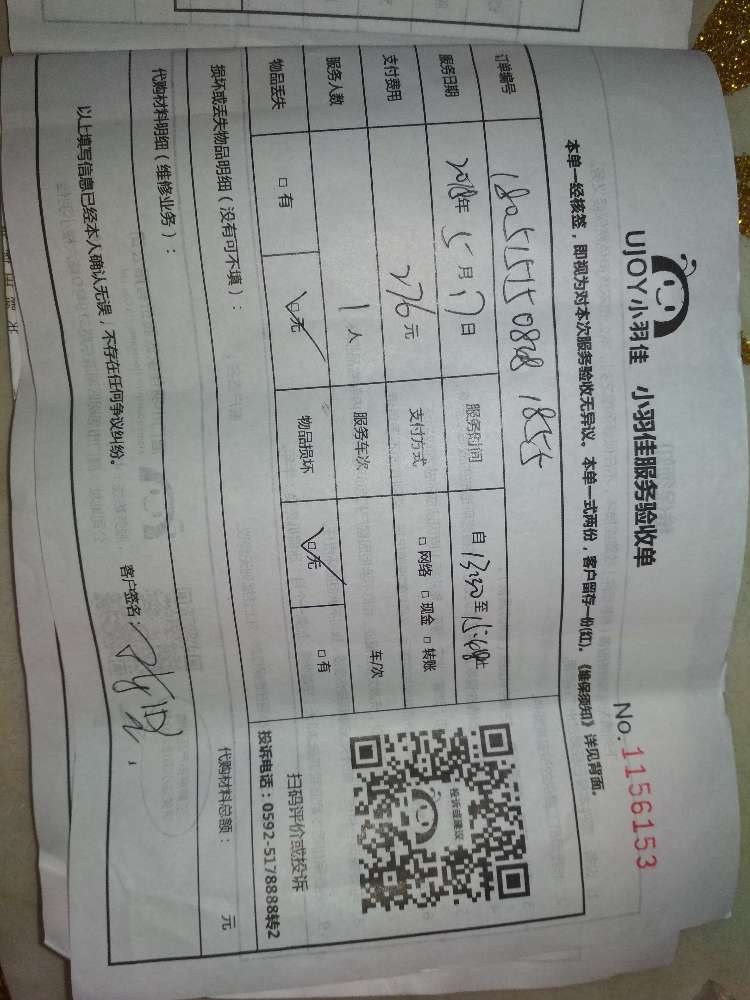 UJOY小羽佳 小羽佳服务验收单
No.1156153
本单一经核签，即视为对本次服务验收无异议。本单一式两份，客户留存一份(红)。《维保须知》详见背面。
订单编号
服务日期 2018年 5月 17日 服务时间 自 至 止
支付费用 276元 支付方式 □ 网络 □ 现金 □ 转账
服务人数 1人 服务车次 车/次
物品丢失 □ 有 □ 无 物品损坏 □ 无 □ 有
投诉或建议
扫码评价或投诉
投诉电话：0592-5178888转2
损坏或丢失物品明细（没有可不填）：
代购材料明细（维修业务）： 代购材料总额： 元
以上填写信息已经本人确认无误，不存在任何争议纠纷。 客户签名：